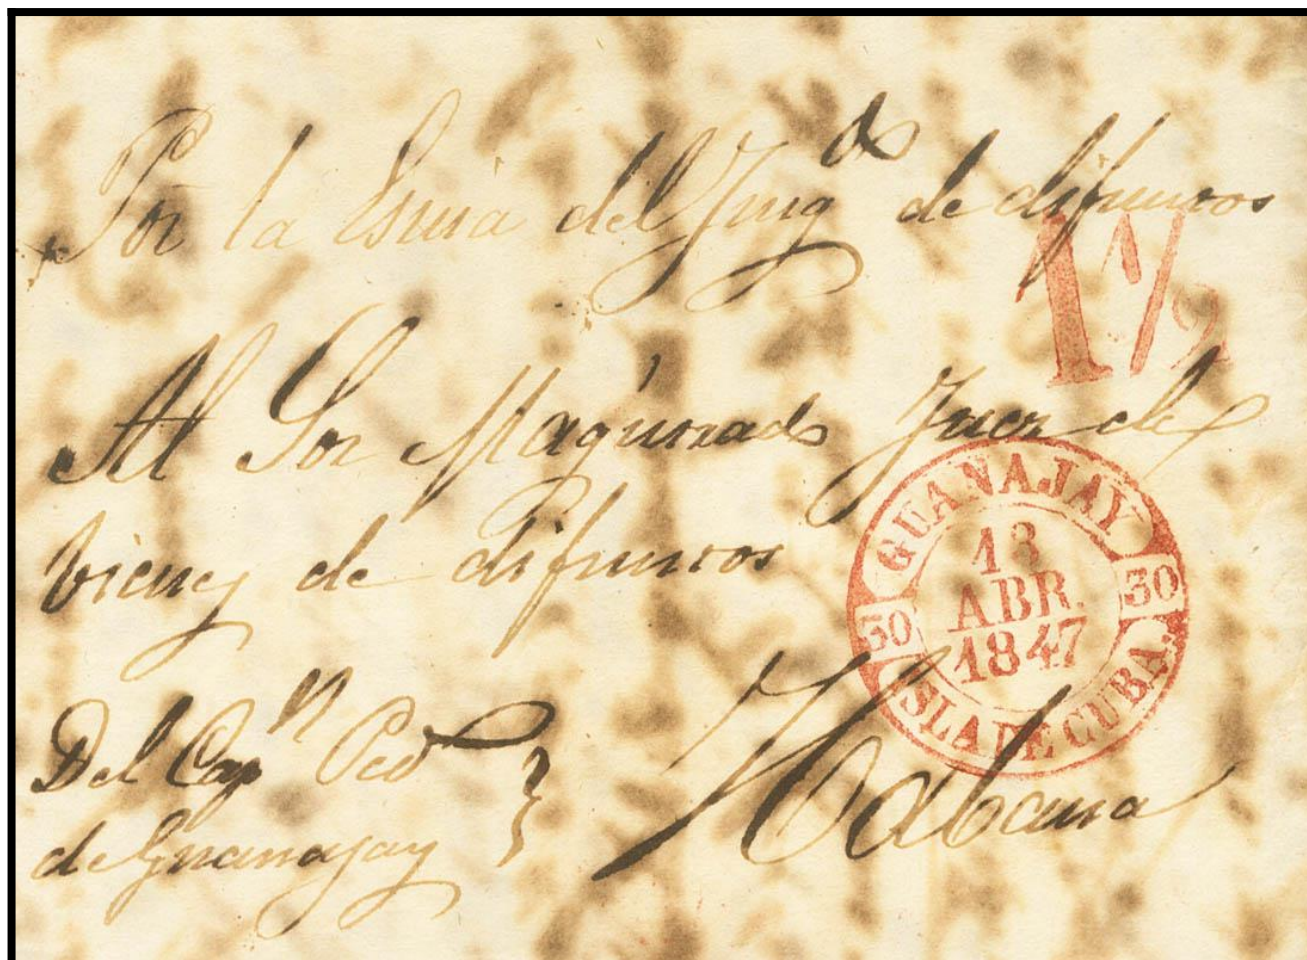 Por la Esnia del Juzgdo de difuntos
1 1/2
Al Sor Magistrado Juez de
bienes de difuntos
GUANAJAY
13
ABR.
1847
30 30
ISLA DE CUBA.
Del Capn Ped
de Guanajay
Habana